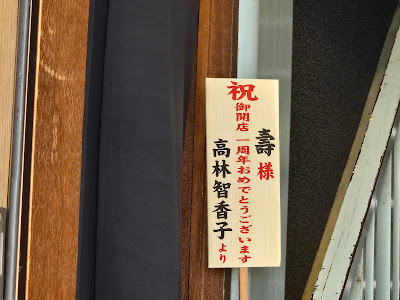 祝
壽様
御開店一周年おめでとうございます
高林智香子より